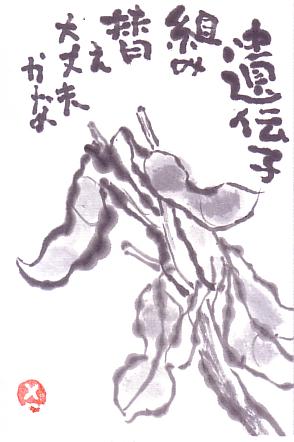 遺伝子
組み
替え
大丈夫
かなぁ